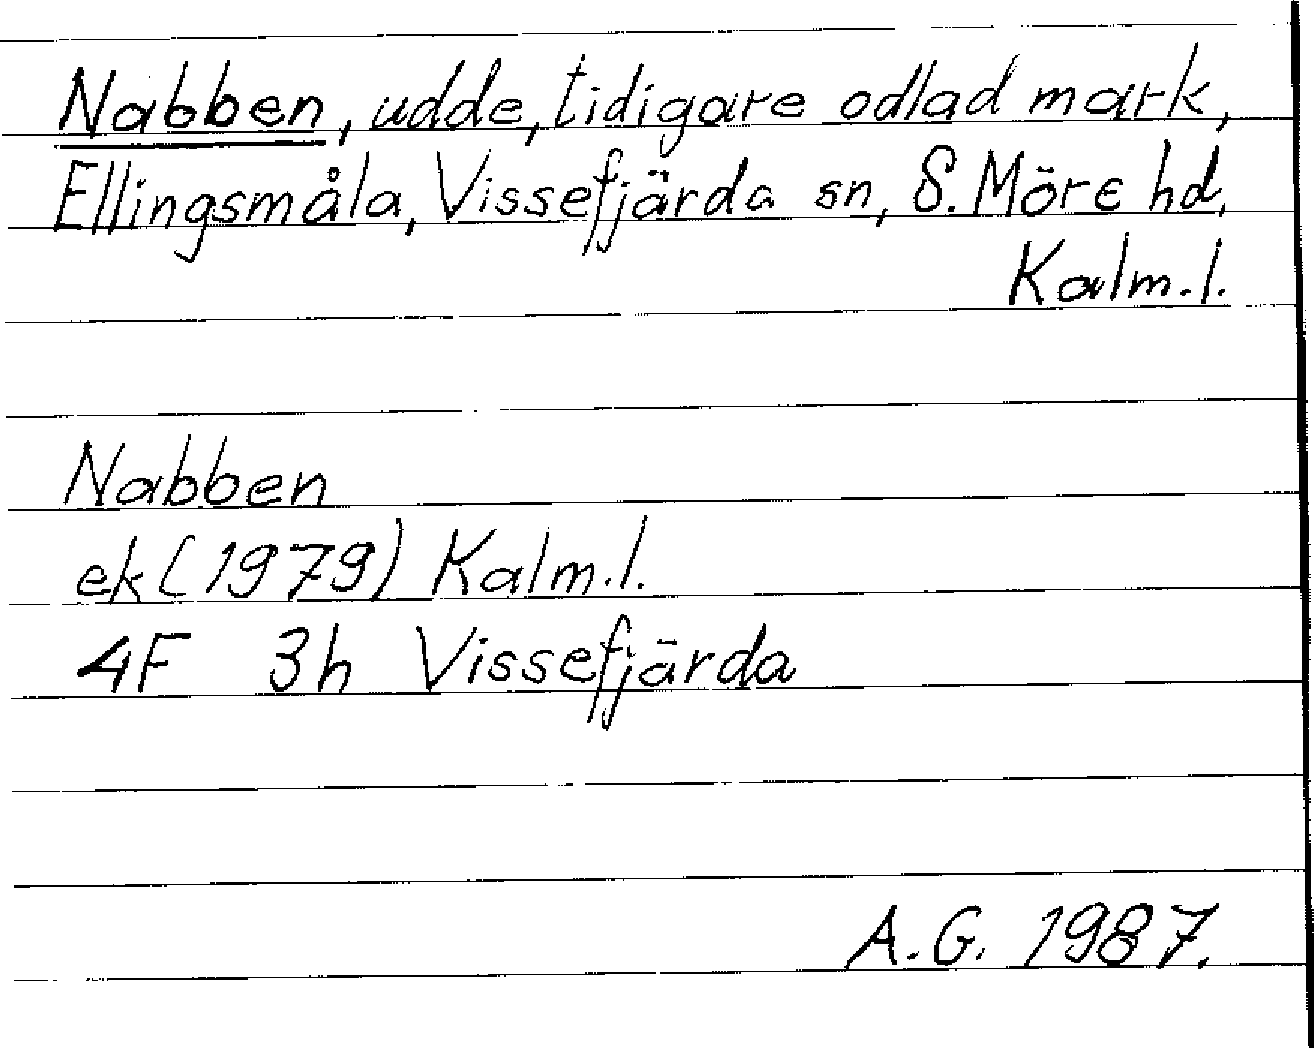 Nabben, udde, tidigare odlad mark,
Ellingsmåla, Vissefjärda sn, S. Möre hd,
Kalm.l.
Nabben
ek (1979) Kalm.l.
4F 3h Vissefjärda
A.G. 1987.